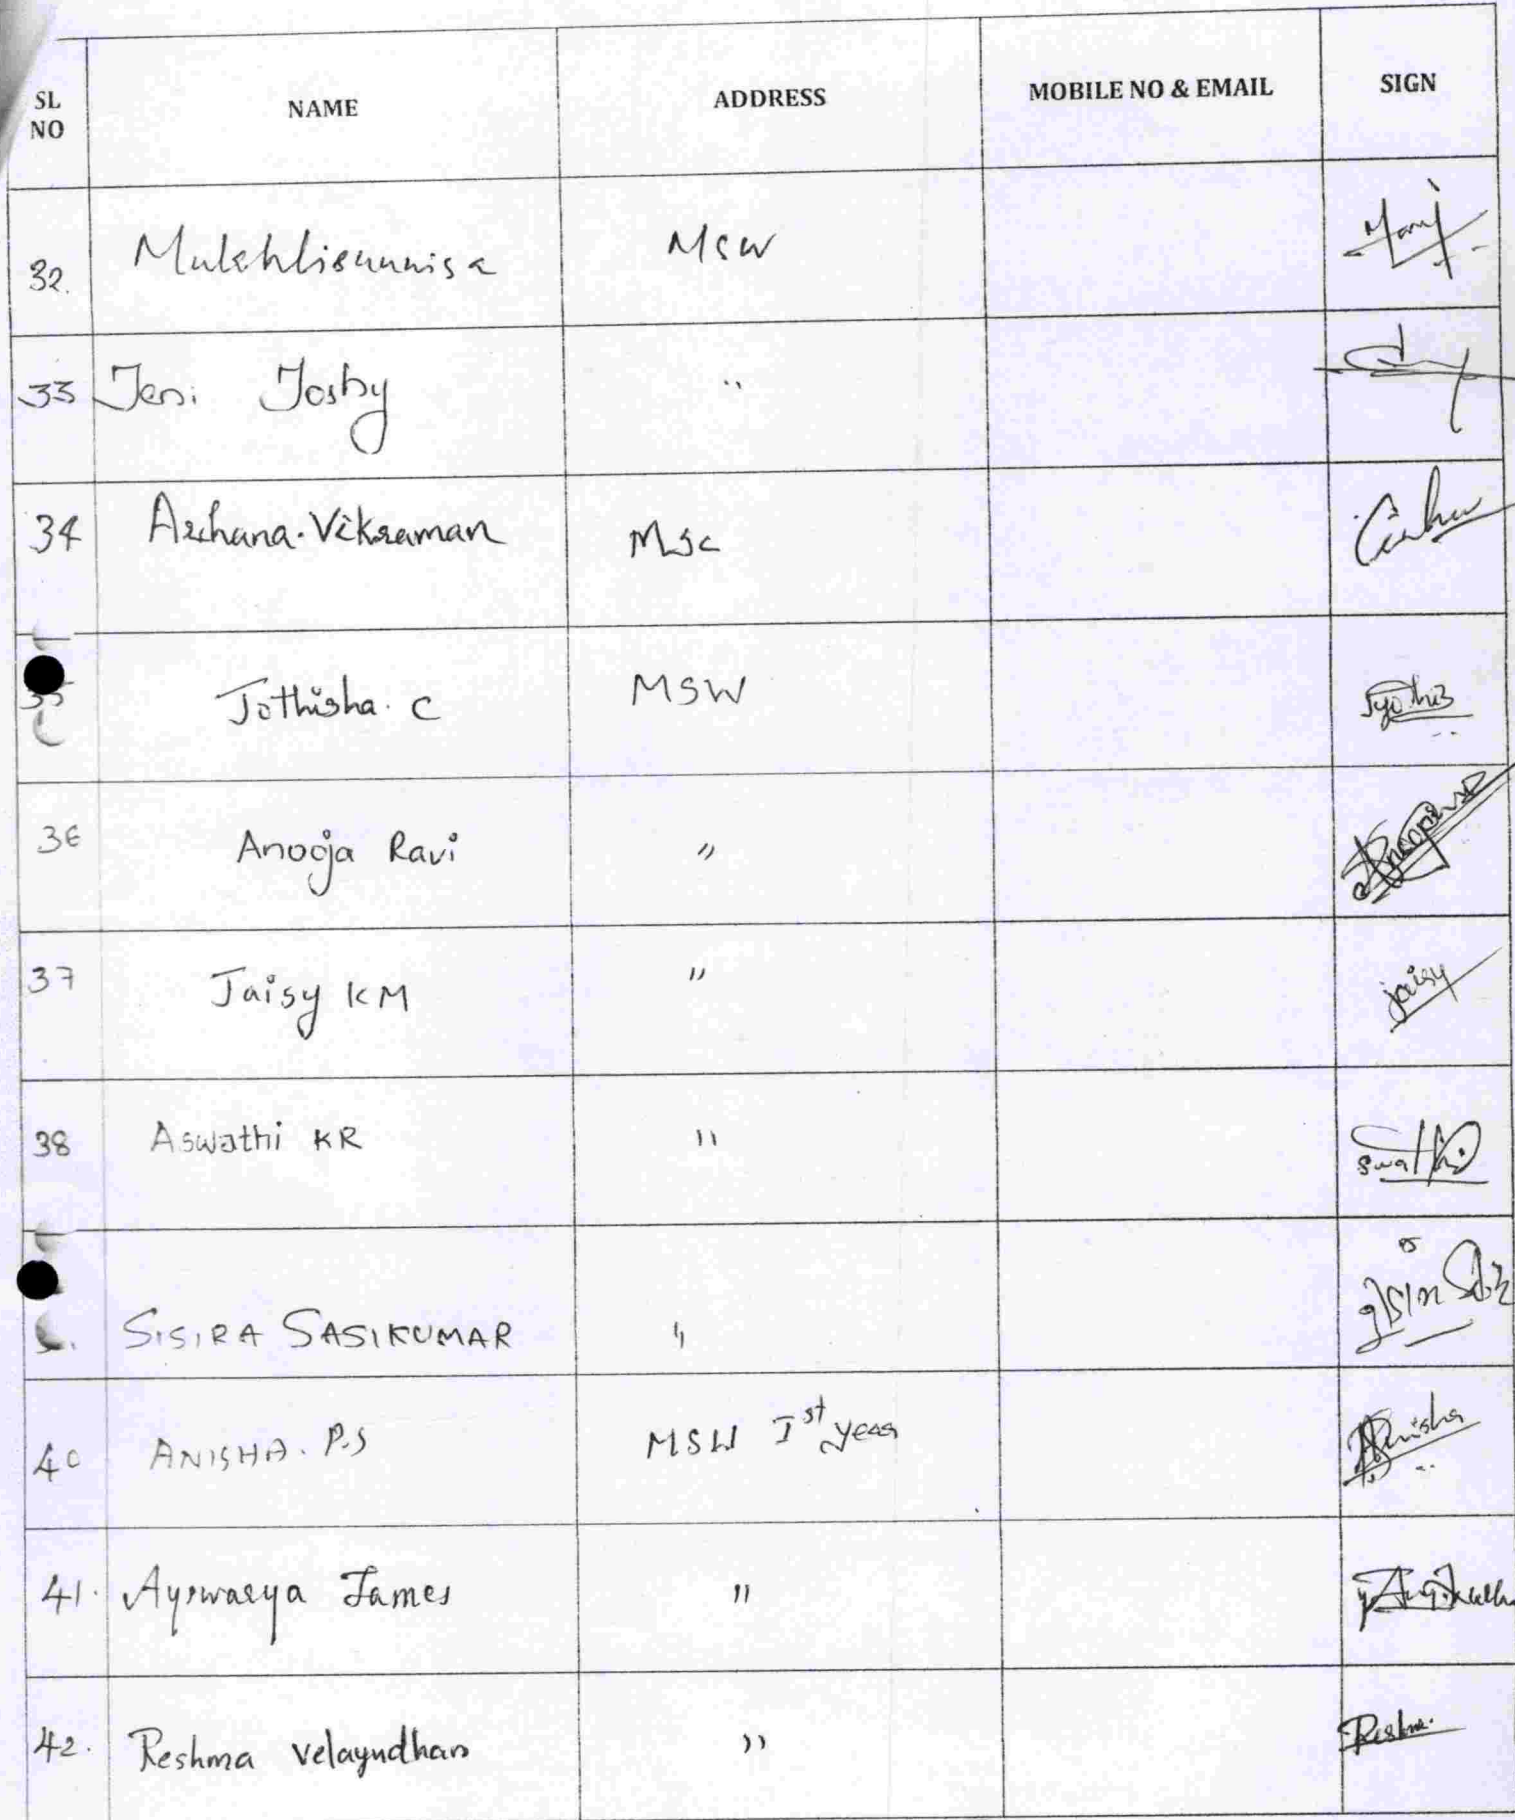 SL NO NAME ADDRESS MOBILE NO & EMAIL SIGN
32. Mukhlisunnisa MSW
33 Jeni Joshy "
34 Archana. Vikraman Msc
35 Jothisha. C MSW Jyothis
36 Anooja Ravi "
37 Jaisy KM " jaisy
38 Aswathi KR " Swathi
SISIRA SASIKUMAR "
40 ANISHA. P.S MSW Ist year Anisha
41. Ayswarya James "
42. Reshma Velayudhan " Reshma.